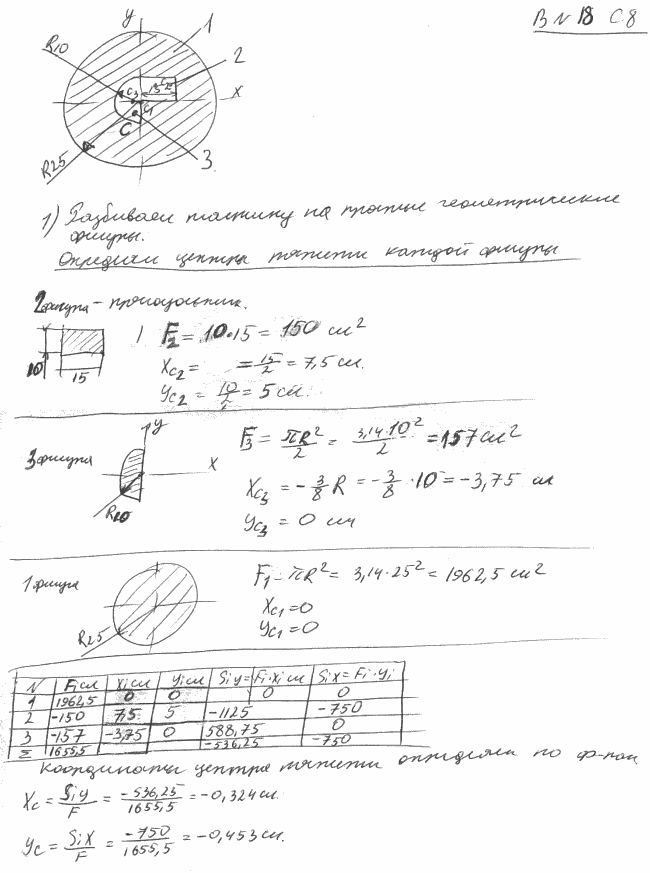 В N 18 С.8
y
1
R10
2
C3
15
C2
x
C1
C
R25
3
1) Разбиваем пластину на простые геометрические
фигуры.
Определим центры тяжести каждой фигуры
2 фигура – прямоугольник.
10
15
F2 = 10·15 = 150 см²
Xc2 = = 15/2 = 7,5 см.
Yc2 = 10/2 = 5 см.
3 фигура
y
x
R10
F3 = πR²/2 = 3,14·10²/2 = 157 см²
Xc3 = -3/8 R = -3/8 · 10 = -3,75 см
Yc3 = 0 см
1 фигура
R25
F1 = πR² = 3,14·25² = 1962,5 см²
Xc1 = 0
Yc1 = 0
N Fi см Xi см Yi см Siy = Fi·Xi см Six = Fi·yi
1 1962,5 0 0 0 0
2 -150 7,5 5 -1125 -750
3 -157 -3,75 0 588,75 0
Σ 1655,5 -536,25 -750
Координаты центра тяжести определим по ф-лам
Xc = Siy/F = -536,25/1655,5 = -0,324 см.
Yc = Six/F = -750/1655,5 = -0,453 см.